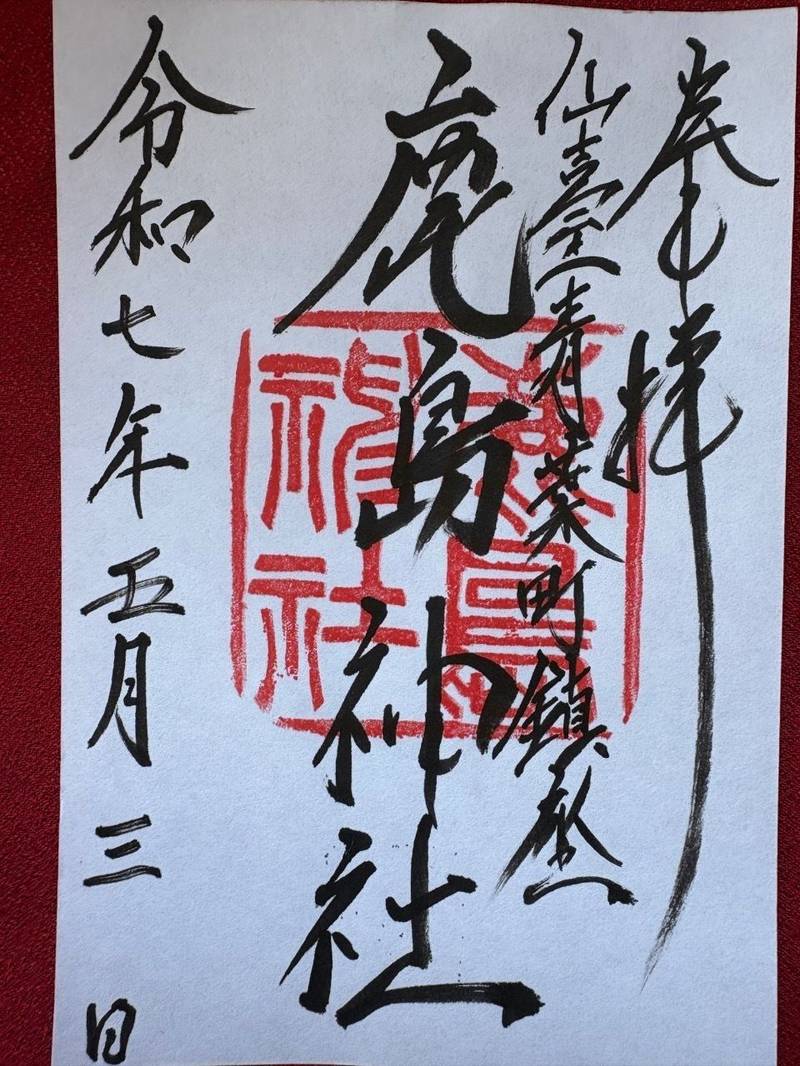 奉拝
仙臺青葉町鎮座
鹿島神社
令和七年五月三日
鹿島
神社